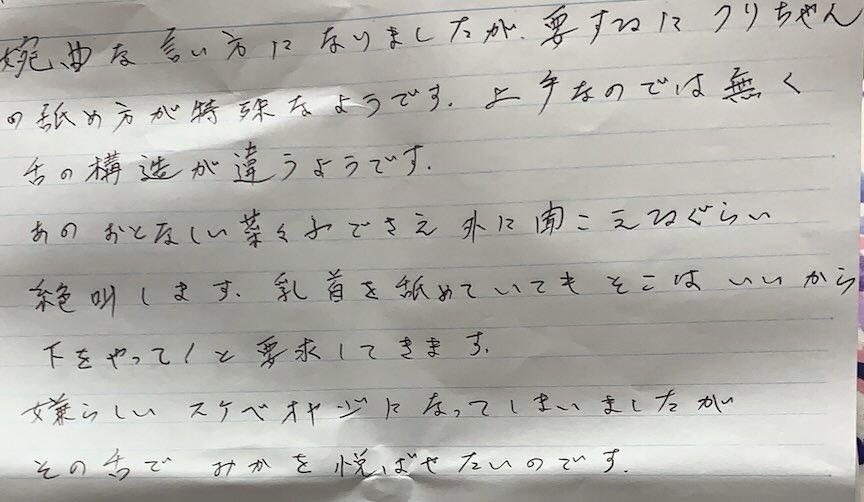 婉曲な言い方になりましたが、要するにクリちゃん
の舐め方が特殊なようです。上手なのでは無く
舌の構造が違うようです。
あのおとなしい菜々子でさえ外に聞こえるぐらい
絶叫します。乳首を舐めていてもそこはいいから
下をやって!と要求してきます。
嫌らしいスケベオヤジになってしまいましたが
その舌でみかを悦ばせたいのです。